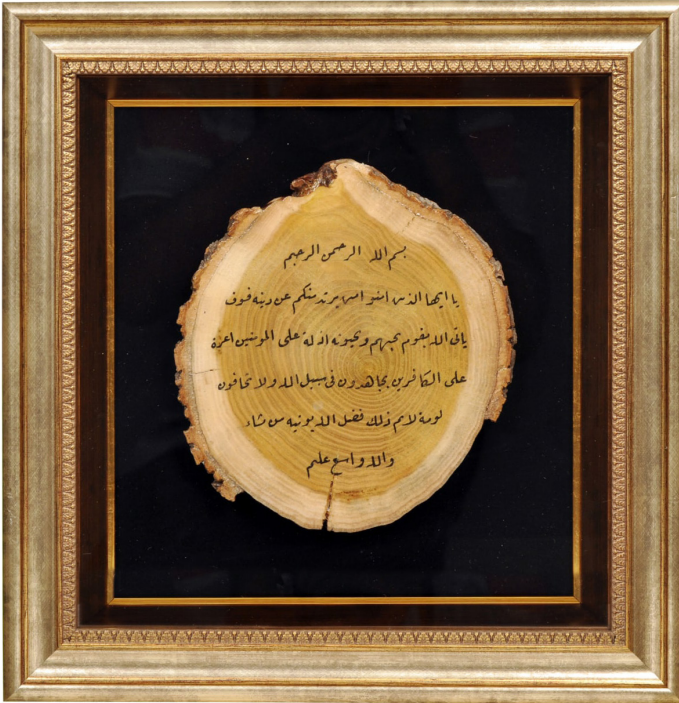 بسم الله الرحمن الرحيم
يا ايها الذين امنو امن يرتد منكم عن دينه فوف
ياتى الله بقوم يحبهم ويحبونه اذلة على المومنين اعزة
على الكافرين يجاهدون فى سبيل الله ولا تخافون
لومة لائم ذلك فضل الله يوتيه من شاء
والله واسع عليم